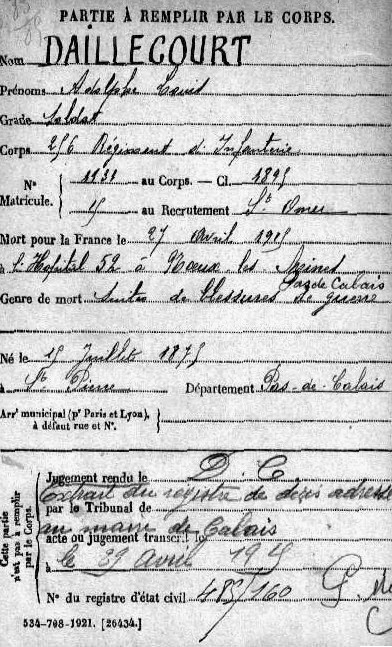 PARTIE À REMPLIR PAR LE CORPS.
Nom DAILLECOURT
Prénoms Adolphe Louis
Grade Soldat
Corps 256 Régiment d'Infanterie
N° Matricule. 1131 au Corps. — Cl. 1895
au Recrutement St Omer
Mort pour la France le 27 Avril 1915
à l'Hopital 52 à Noeux les Mines
Pas de Calais
Genre de mort Suites de blessures de guerre
Né le 15 Juillet 1875
à St Pierre Département Pas-de-Calais
Arrt municipal (pr Paris et Lyon),
à défaut rue et N°.
Cette partie n'est pas à remplir par le Corps.
Jugement rendu le D. C.
Extrait du registre de décès adressé
par le Tribunal de
au maire de Calais
acte ou jugement transcrit le
à le 29 Avril 1915
N° du registre d'état civil 485/160
534-708-1921. [26434.]